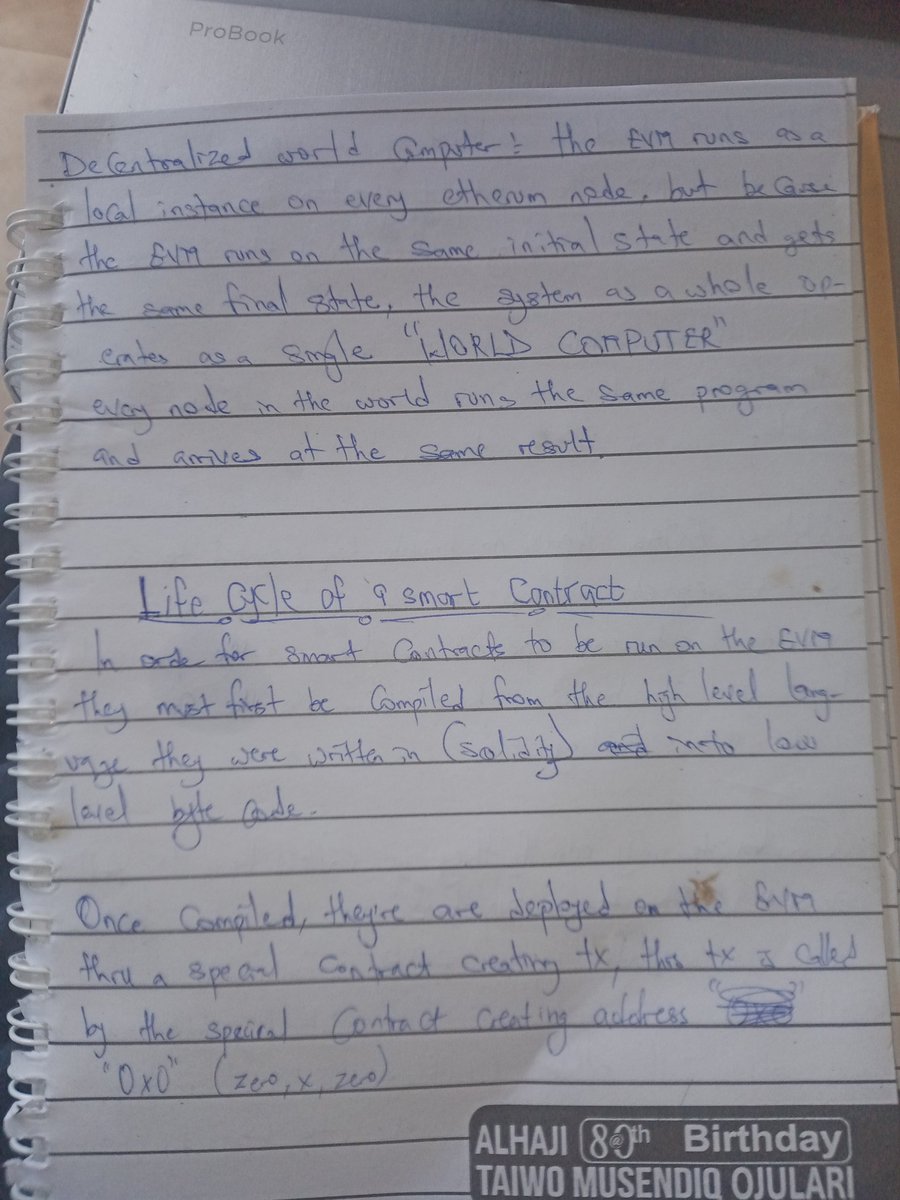 ProBook
Decentralized world Computer: the EVM runs as a
local instance on every etherum node, but because
the EVM runs on the same initial state and gets
the same final state, the system as a whole op-
erates as a single "WORLD COMPUTER"
every node in the world runs the same program
and arrives at the same result
Life Cycle of a smart Contract
In order for smart Contracts to be run on the EVM
they must first be Compiled from the high level lang-
uage they were written in (solidity) and into low
level byte code.
Once Compiled, they're are deployed on the EVM
thru a special contract creating tx, this tx is called
by the special Contract creating address
"0x0" (zero, x, zero)
ALHAJI 80th Birthday
TAIWO MUSENDIQ OJULARI